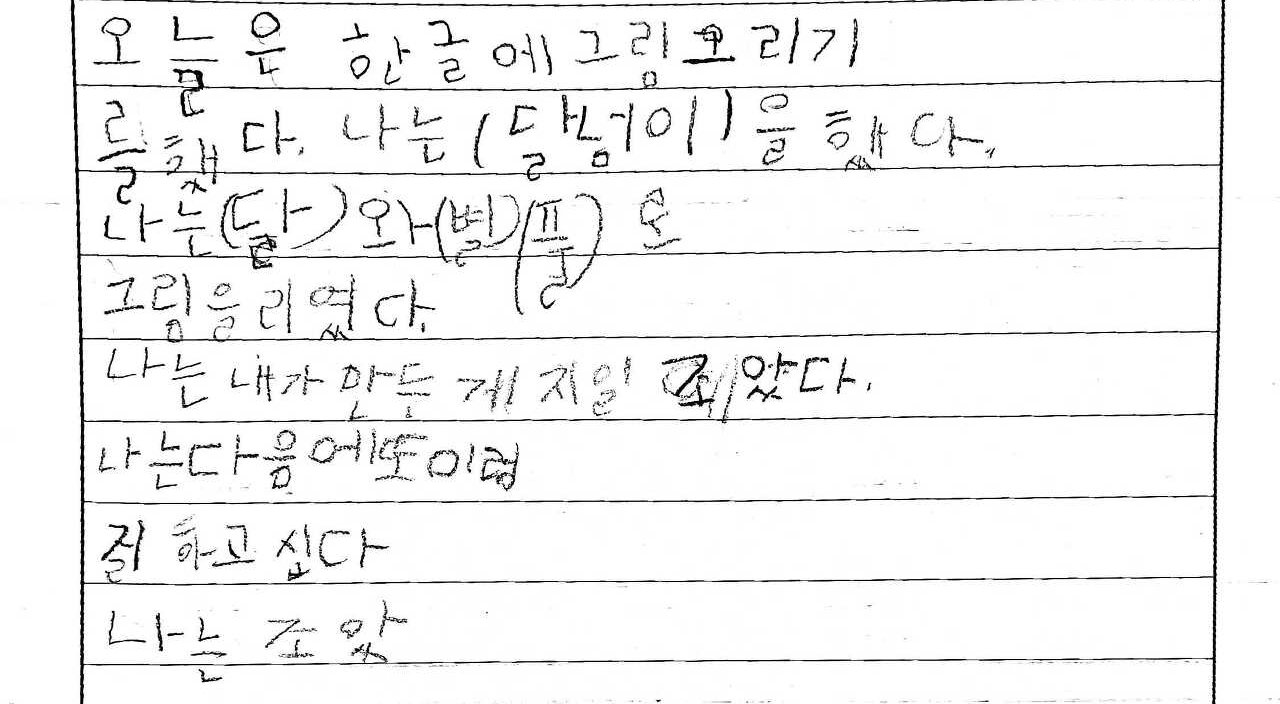 오늘은 한글에그림오리기
를했다. 나는(달넘이)을했다.
나는(달)와(별)(풀)오
그림을리였다.
나는 내가 만든 게 지일 조았다.
나는다음에또이렁
질 하고 십다
나는 조았